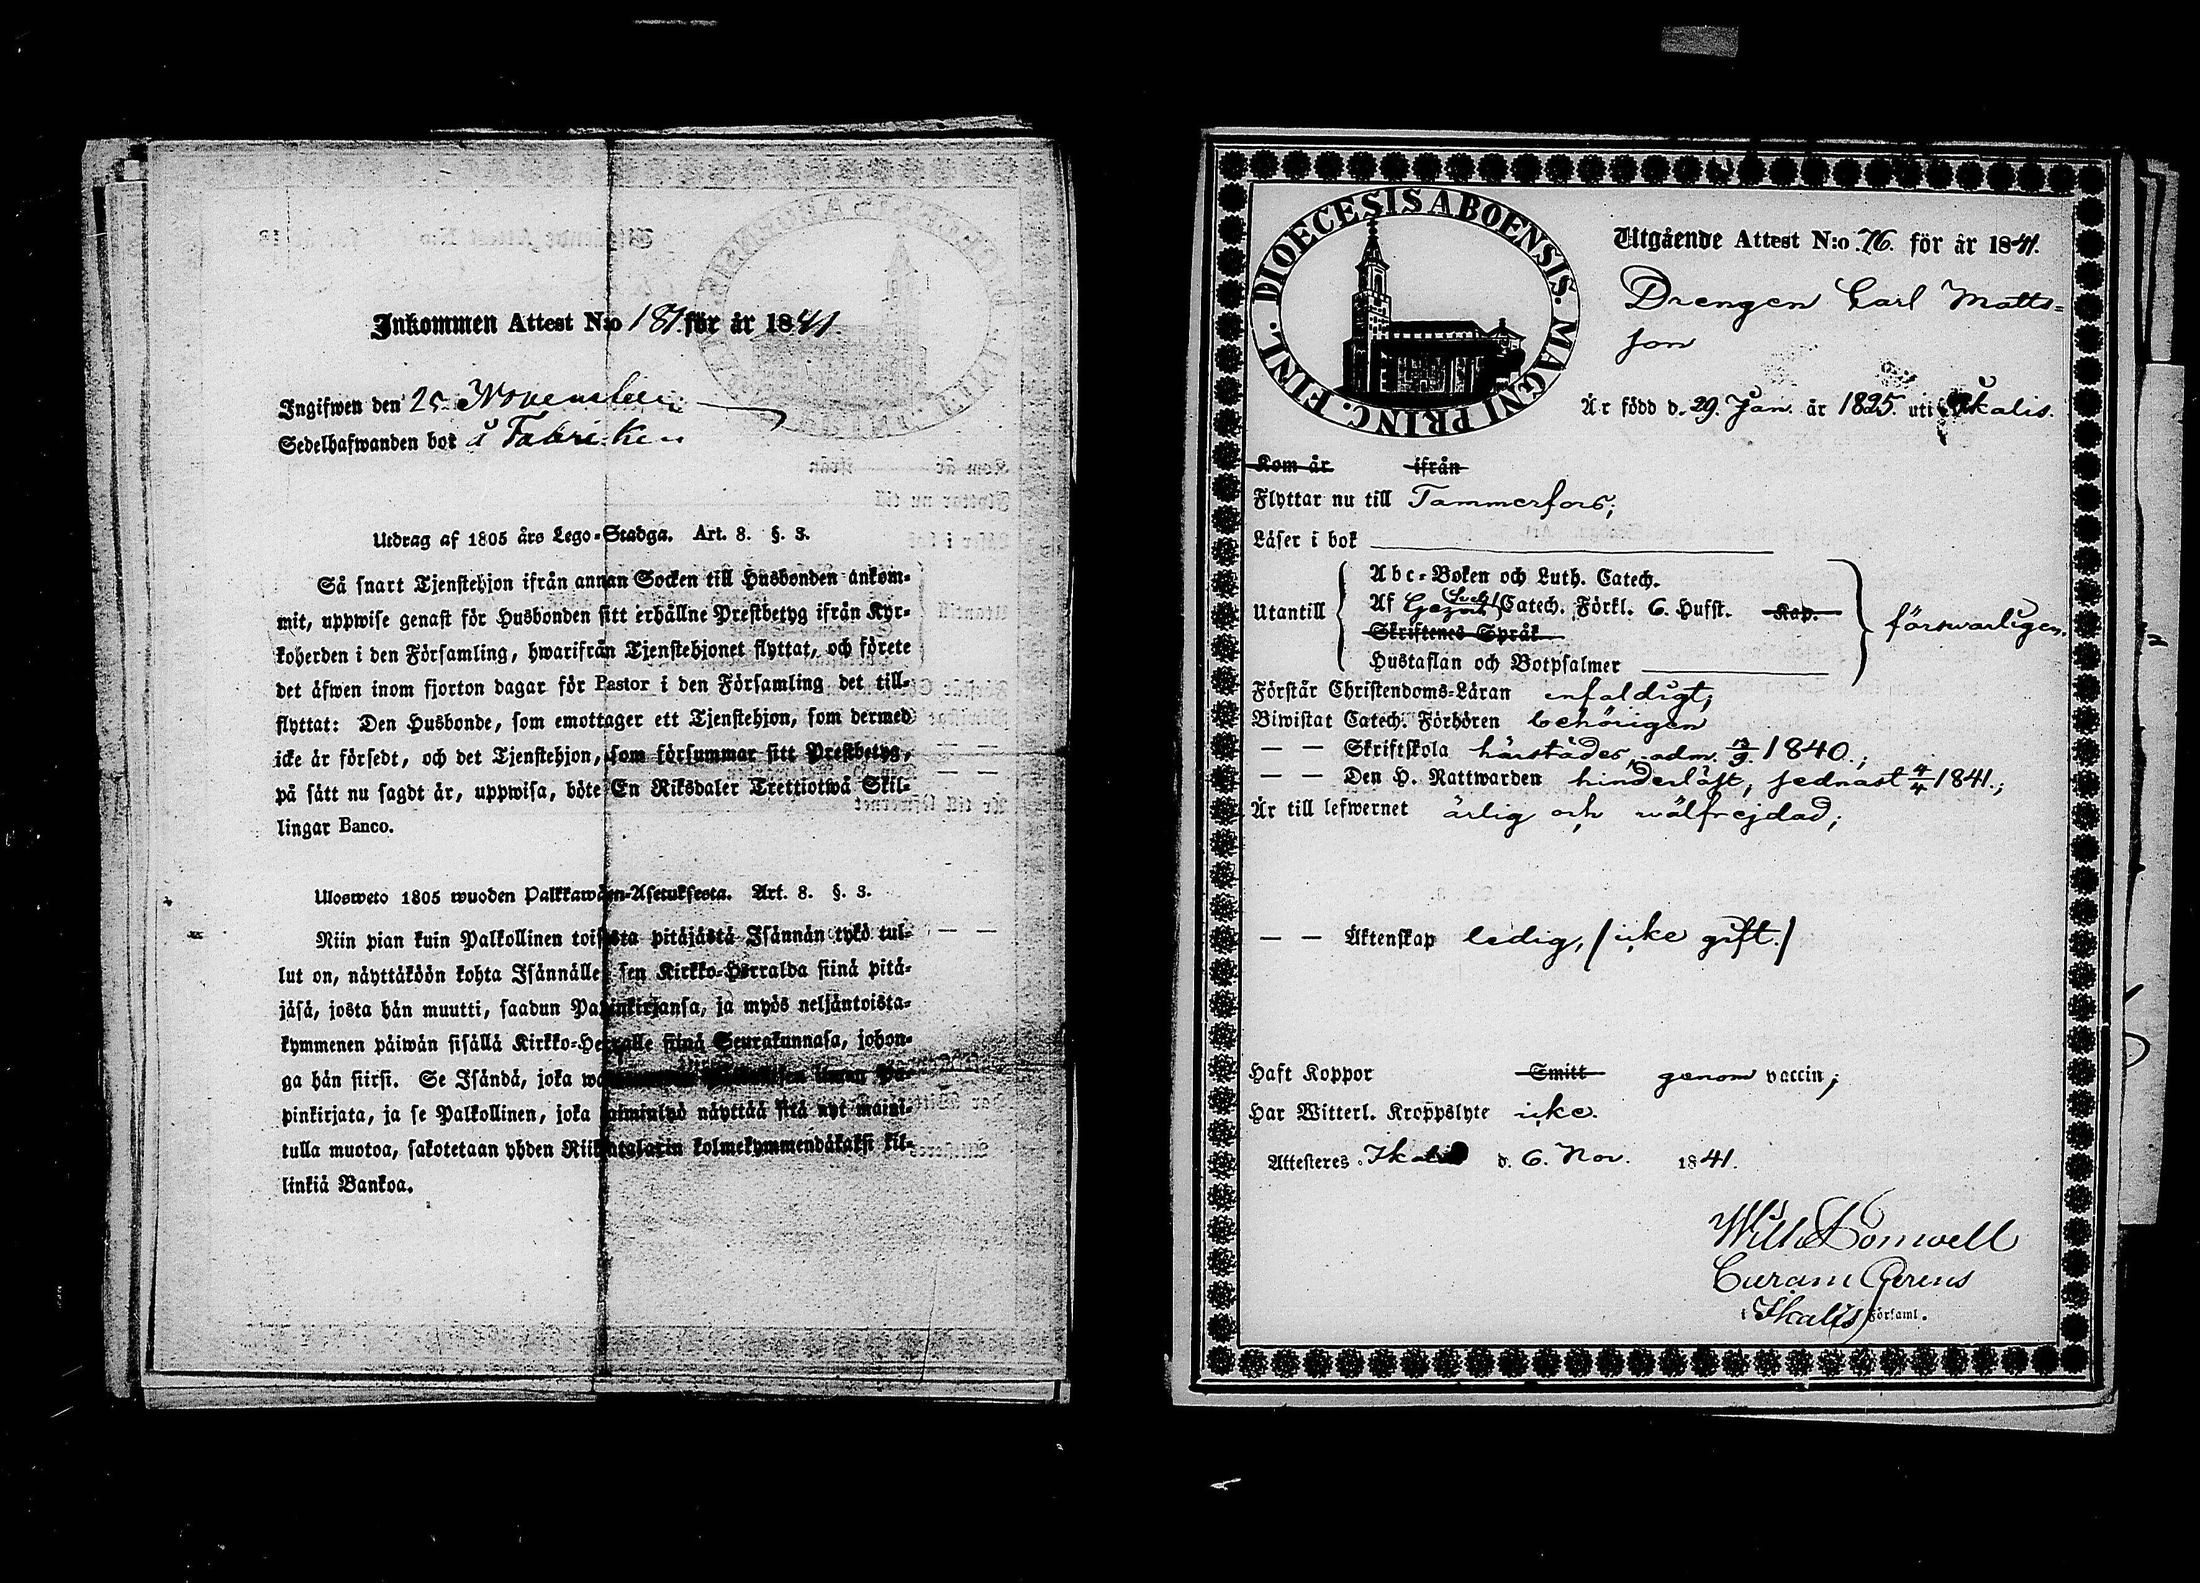 Inkommen Attest N:o 181. för år 1841.
Ingifwen den 25 November
Sedelhafwanden bor å Fabriken
Utdrag af 1805 års Lego-Stadga. Art. 8. §. 3.
Så snart Tjenstehjon ifrån annan Socken till Husbonden ankom-
mit, uppwise genast för Husbonden sitt erhållne Prestbetyg ifrån Kyr-
koherden i den Församling, hwarifrån Tjenstehjonet flyttat, och förete
det äfwen inom fjorton dagar för Pastor i den Församling det till-
flyttat: Den Husbonde, som emottager ett Tjenstehjon, som dermed
icke är försedt, och det Tjenstehjon, som försummar sitt Prestbetyg,
på sätt nu sagdt är, uppwisa, böte En Riksdaler Trettiotwå Skil-
lingar Banco.
Ulosweto 1805 wuoden Palkkawäen-Asetuksesta. Art. 8. §. 3.
Niin pian kuin Palkollinen toisesta pitäjästä Isännän tykö tul-
lut on, näyttäköön kohta Isännälle sen Kirkko-Herralda siinä pitä-
jäsä, josta hän muutti, saadun Papinkirjansa, ja myös neljäntoista-
kymmenen päiwän sisällä Kirkko-Herralle siinä Seurakunnasa, johon-
ga hän siirsi. Se Isändä, joka
pinkirjata, ja se Palkollinen, joka laiminlyö näyttää sitä nyt maini-
tulla muotoa, sakotetaan yhden Riikintalarin kolmekymmendäkaksi kil-
linkiä Bankoa.
DIOECESIS ABOENSIS. MAGNI PRINC. FINL.
Utgående Attest N:o 76. för år 1841.
Drengen Carl Matts=
son
Är född d. 29. Jan. år 1825. uti Ikalis.
Kom år ifrån
Flyttar nu till Tammerfors;
Läser i bok
Utantill
Abc-Boken och Luth. Catech.
Af Catech. Förkl. 6. Hufst. Kap.
Skriftenes Språk
Hustaflan och Botpsalmer
försvarligen.
Förstår Christendoms-Läran enfaldigt;
Biwistat Catech. Förhören behörigen
— — Skriftskola härstädes, adm. 1840.;
— — Den H. Nattwarden hinderlöst, sednast 4/4 1841.;
Är till lefwernet ärlig och wälfrejdad;
— — Äktenskap ledig, /icke gift./
Haft Koppor Smitt genom vaccin;
Har Witterl. Kroppslyte icke.
Attesteres Ikalis d. 6. Nov. 1841.
Wilh
Curam Gerens
i Ikalis Församl.